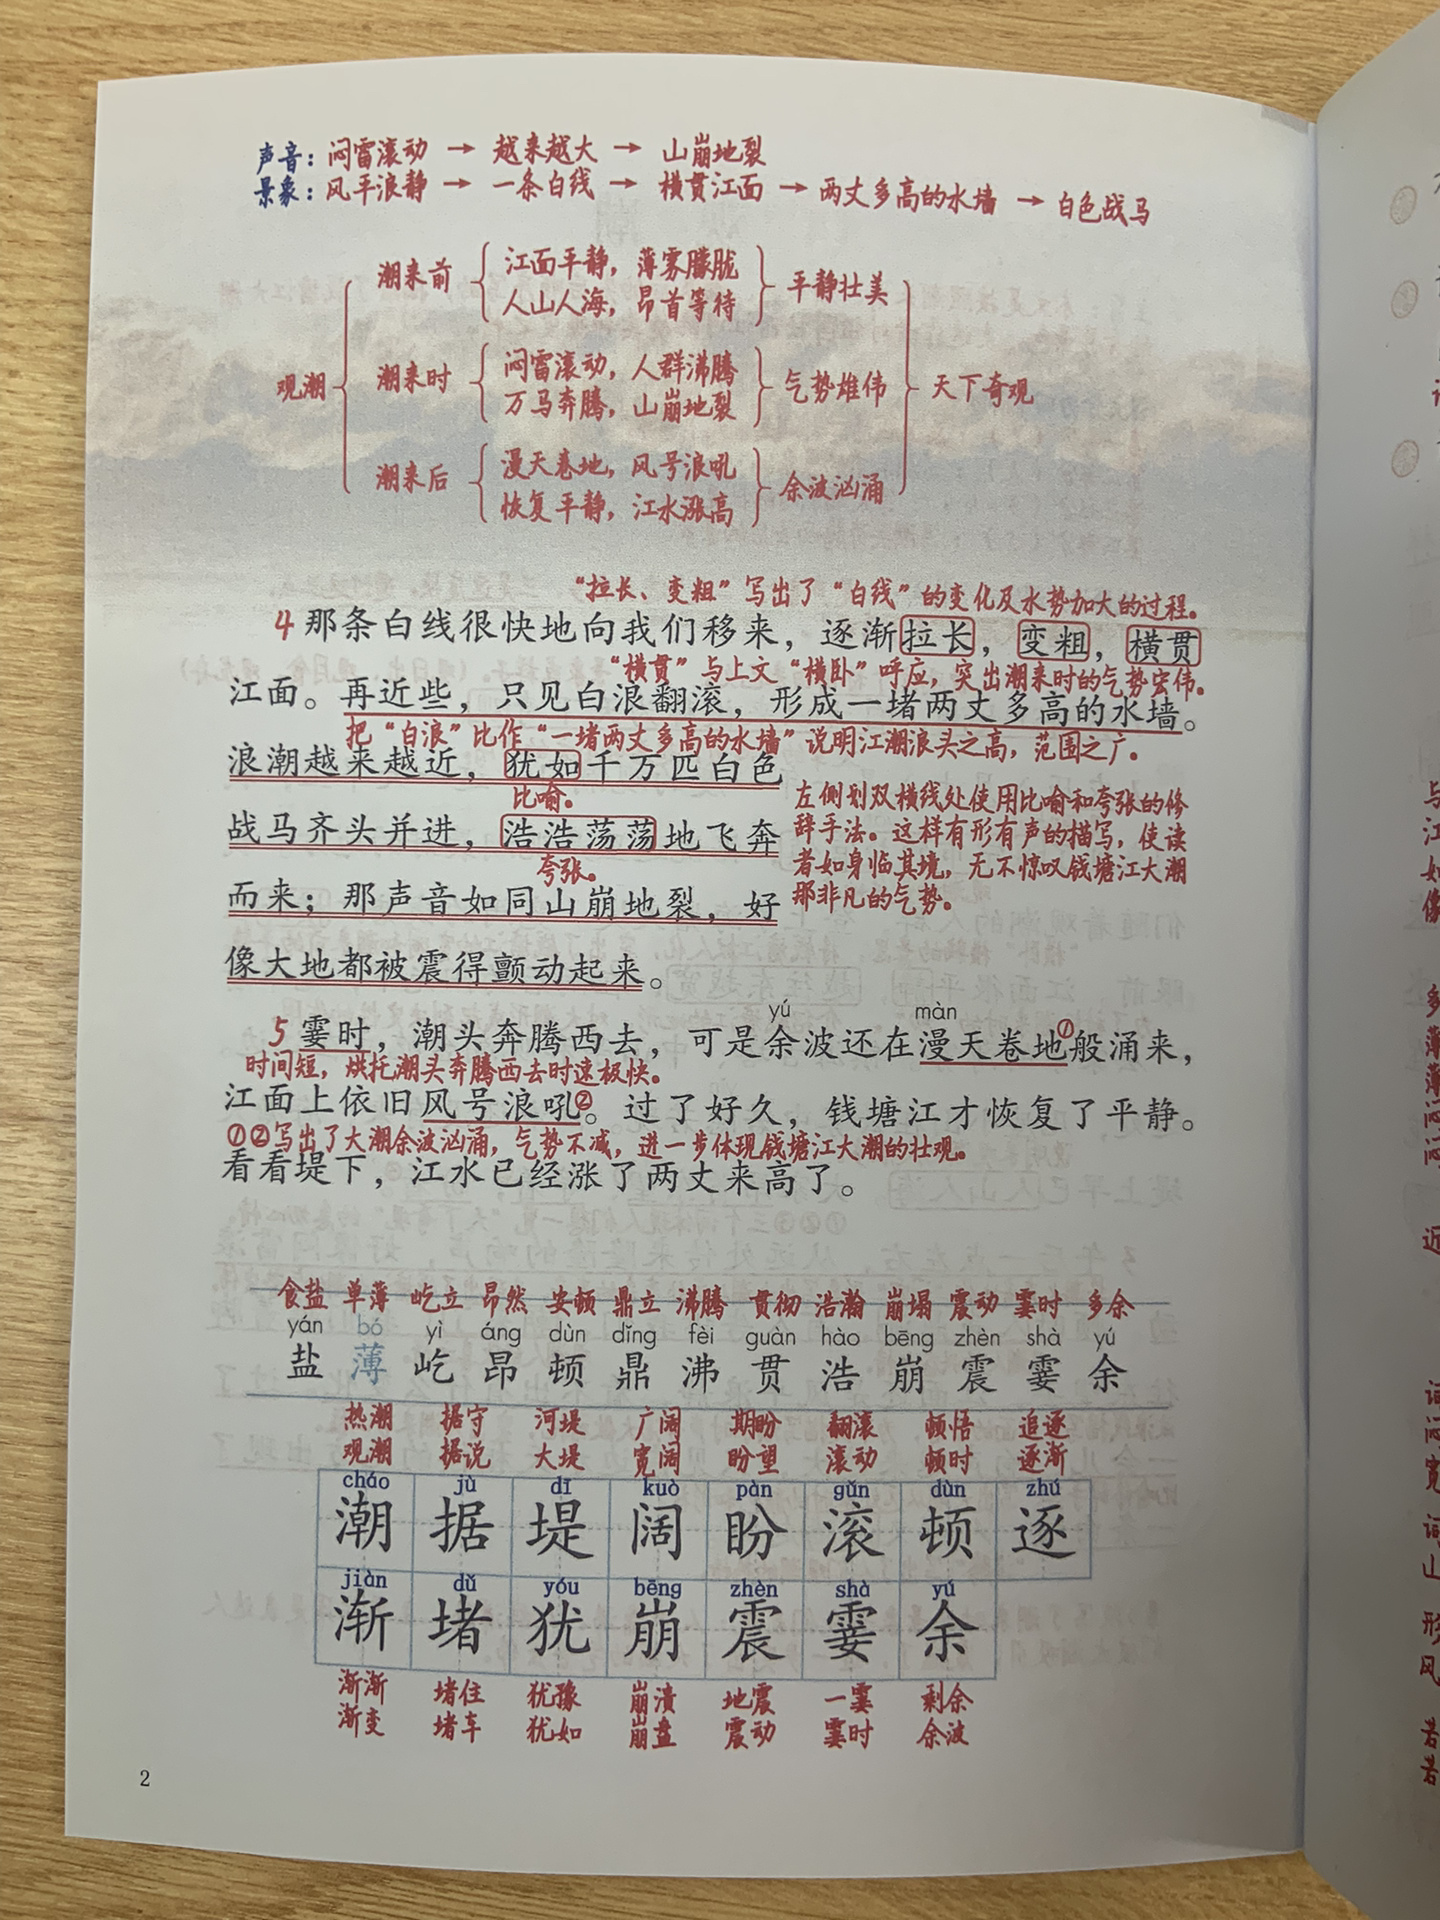 声音：闷雷滚动 → 越来越大 → 山崩地裂
景象：风平浪静 → 一条白线 → 横贯江面 → 两丈多高的水墙 → 白色战马
观潮
潮来前
江面平静，薄雾朦胧
人山人海，昂首等待
平静壮美
潮来时
闷雷滚动，人群沸腾
万马奔腾，山崩地裂
气势雄伟
潮来后
漫天卷地，风号浪吼
恢复平静，江水涨高
余波汹涌
天下奇观
“拉长、变粗”写出了“白线”的变化及水势加大的过程。
4 那条白线很快地向我们移来，逐渐拉长，变粗，横贯
“横贯”与上文“横卧”呼应，突出潮来时的气势宏伟。
江面。再近些，只见白浪翻滚，形成一堵两丈多高的水墙。
把“白浪”比作“一堵两丈多高的水墙”说明江潮浪头之高，范围之广。
浪潮越来越近，犹如千万匹白色
比喻。
战马齐头并进，浩浩荡荡地飞奔
夸张。
而来；那声音如同山崩地裂，好
像大地都被震得颤动起来。
左侧划双横线处使用比喻和夸张的修
辞手法。这样有形有声的描写，使读
者如身临其境，无不惊叹钱塘江大潮
那非凡的气势。
yú màn
5 霎时，潮头奔腾西去，可是余波还在漫天卷地①般涌来，
时间短，烘托潮头奔腾西去时速极快。
江面上依旧风号浪吼②。过了好久，钱塘江才恢复了平静。
①②写出了大潮余波汹涌，气势不减，进一步体现钱塘江大潮的壮观。
看看堤下，江水已经涨了两丈来高了。
食盐 单薄 屹立 昂然 安顿 鼎立 沸腾 贯彻 浩瀚 崩塌 震动 霎时 多余
yán bó yì áng dùn dǐng fèi guàn hào bēng zhèn shà yú
盐 薄 屹 昂 顿 鼎 沸 贯 浩 崩 震 霎 余
热潮 据守 河堤 广阔 期盼 翻滚 顿悟 追逐
观潮 据说 大堤 宽阔 盼望 滚动 顿时 逐渐
cháo jù dī kuò pàn gǔn dùn zhú
潮 据 堤 阔 盼 滚 顿 逐
jiàn dǔ yóu bēng zhèn shà yú
渐 堵 犹 崩 震 霎 余
渐渐 堵住 犹豫 崩溃 地震 一霎 剩余
渐变 堵车 犹如 崩盘 震动 霎时 余波
2